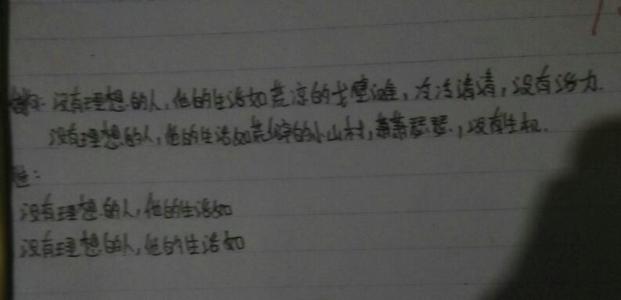 没有理想的人,他的生活如荒凉的戈壁滩,冷冷清清,没有活力.
没有理想的人,他的生活如荒凉的小山村,萧萧瑟瑟,没有生机.
没有理想的人,他的生活如
没有理想的人,他的生活如